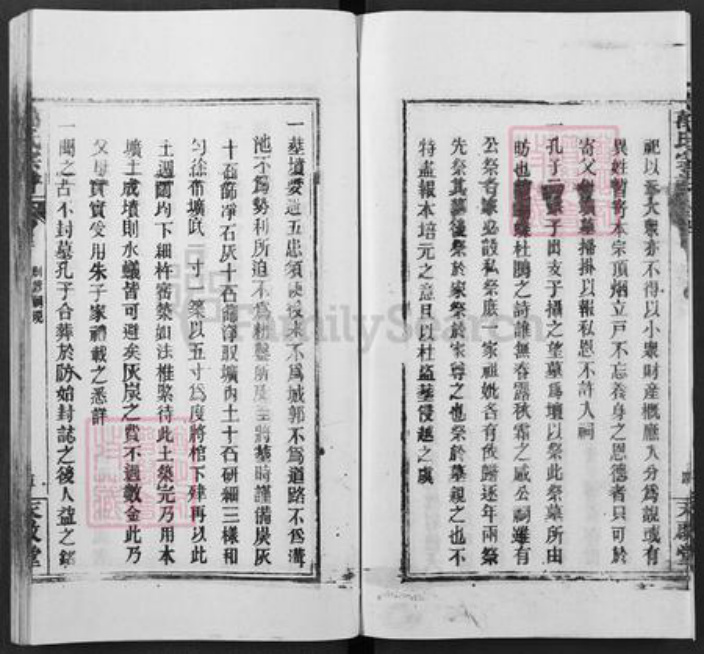 祀以大衆亦不得以小衆財産概應入分爲說或有
異姓暫寄本宗頂烟立戸不忘養身之恩德者只可於
寄父母墳墓掃掛以報私恩不許入祠
一孔子子出支于攝之望墓爲壇以祭此祭墓所由
昉也杜鵑之詩誰無春露秋霜之感公祠雖有
公祭各家必設私祭底家祖妣各有攸歸逐年兩祭
先祭其墓後祭於家祭於家尊之也祭於墓親之也不
特盡報本培元之意且以杜盜墓侵越之虞
一墓墳要避五患須使後來不爲城郭不爲道路不爲溝
池不爲勢利所迫不爲耕犂所及至將葬時謹備炭灰
十石篩凈石灰十石篩凈取壙內土十石研細三樣和
勻徐布壙底一寸一築以五寸爲度將棺下肂再以此
土週圍均下細杵密築如法椎緊待此土築完乃用本
壙土成墳則水蟻皆可避矣灰炭之費不過數金此乃
父母實實受用朱子家禮載之悉詳
一聞之古不封墓孔子合葬於防始封誌之後人益之銘
天敘堂
FamilySearch